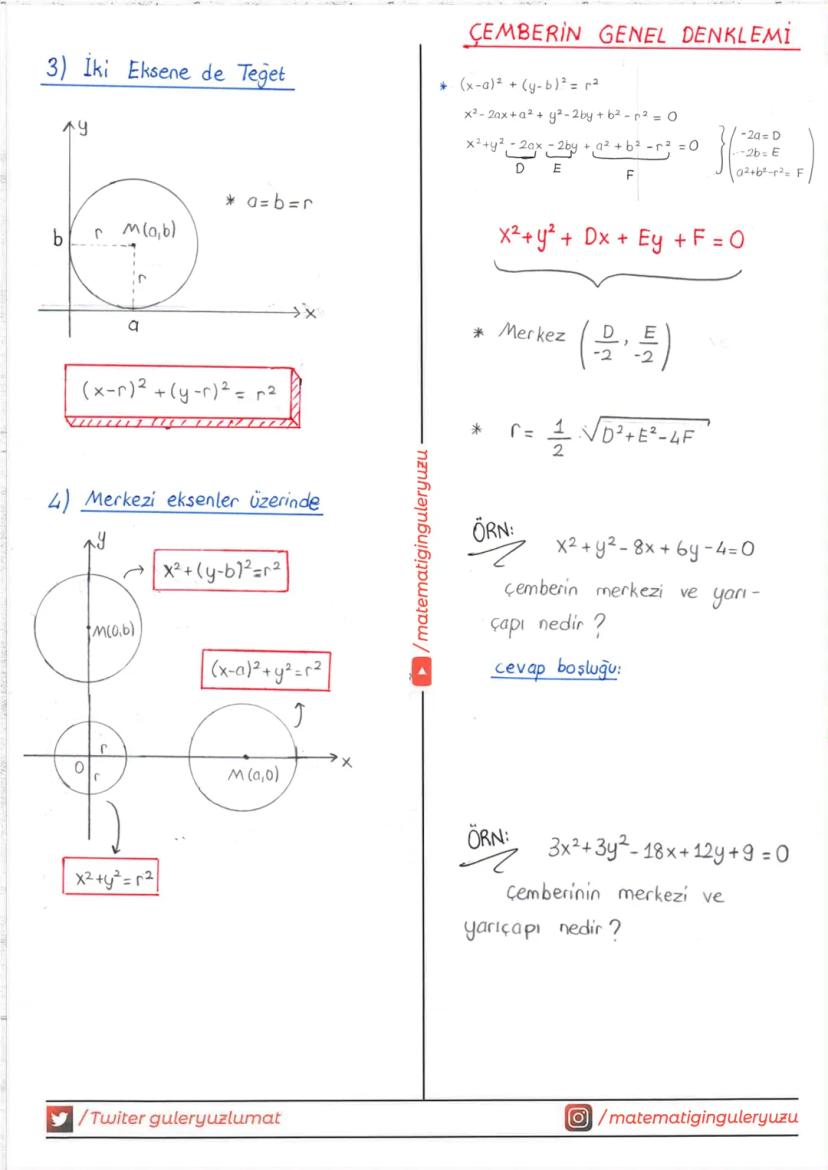 3) İki Eksene de Teğet
y
* a=b=r
b r M(a,b)
r
x
a
(x-r)² + (y-r)² = r²
4) Merkezi eksenler üzerinde
y
x²+(y-b)²=r²
M(0,b)
(x-a)²+y²=r²
r
x
O
r
M(a,0)
x²+y²=r²
/matematiginguleryuzu
ÇEMBERİN GENEL DENKLEMİ
* (x-a)² + (y-b)² = r²
x²-2ax+a² + y²-2by+b²-r² = 0
x²+y² -2ax -2by + a²+b²-r² = 0
D E F
-2a = D
-2b = E
a²+b²-r² = F
x²+y² + Dx + Ey + F = 0
* Merkez (D/-2, E/-2)
* r = 1/2 . √D²+E²-4F
ÖRN: x²+y²-8x+6y-4=0
çemberin merkezi ve yarı-
çapı nedir?
cevap boşluğu:
ÖRN: 3x²+3y²-18x+12y+9=0
Çemberinin merkezi ve
yarıçapı nedir?
/Twiter guleryuzlumat
/matematiginguleryuzu